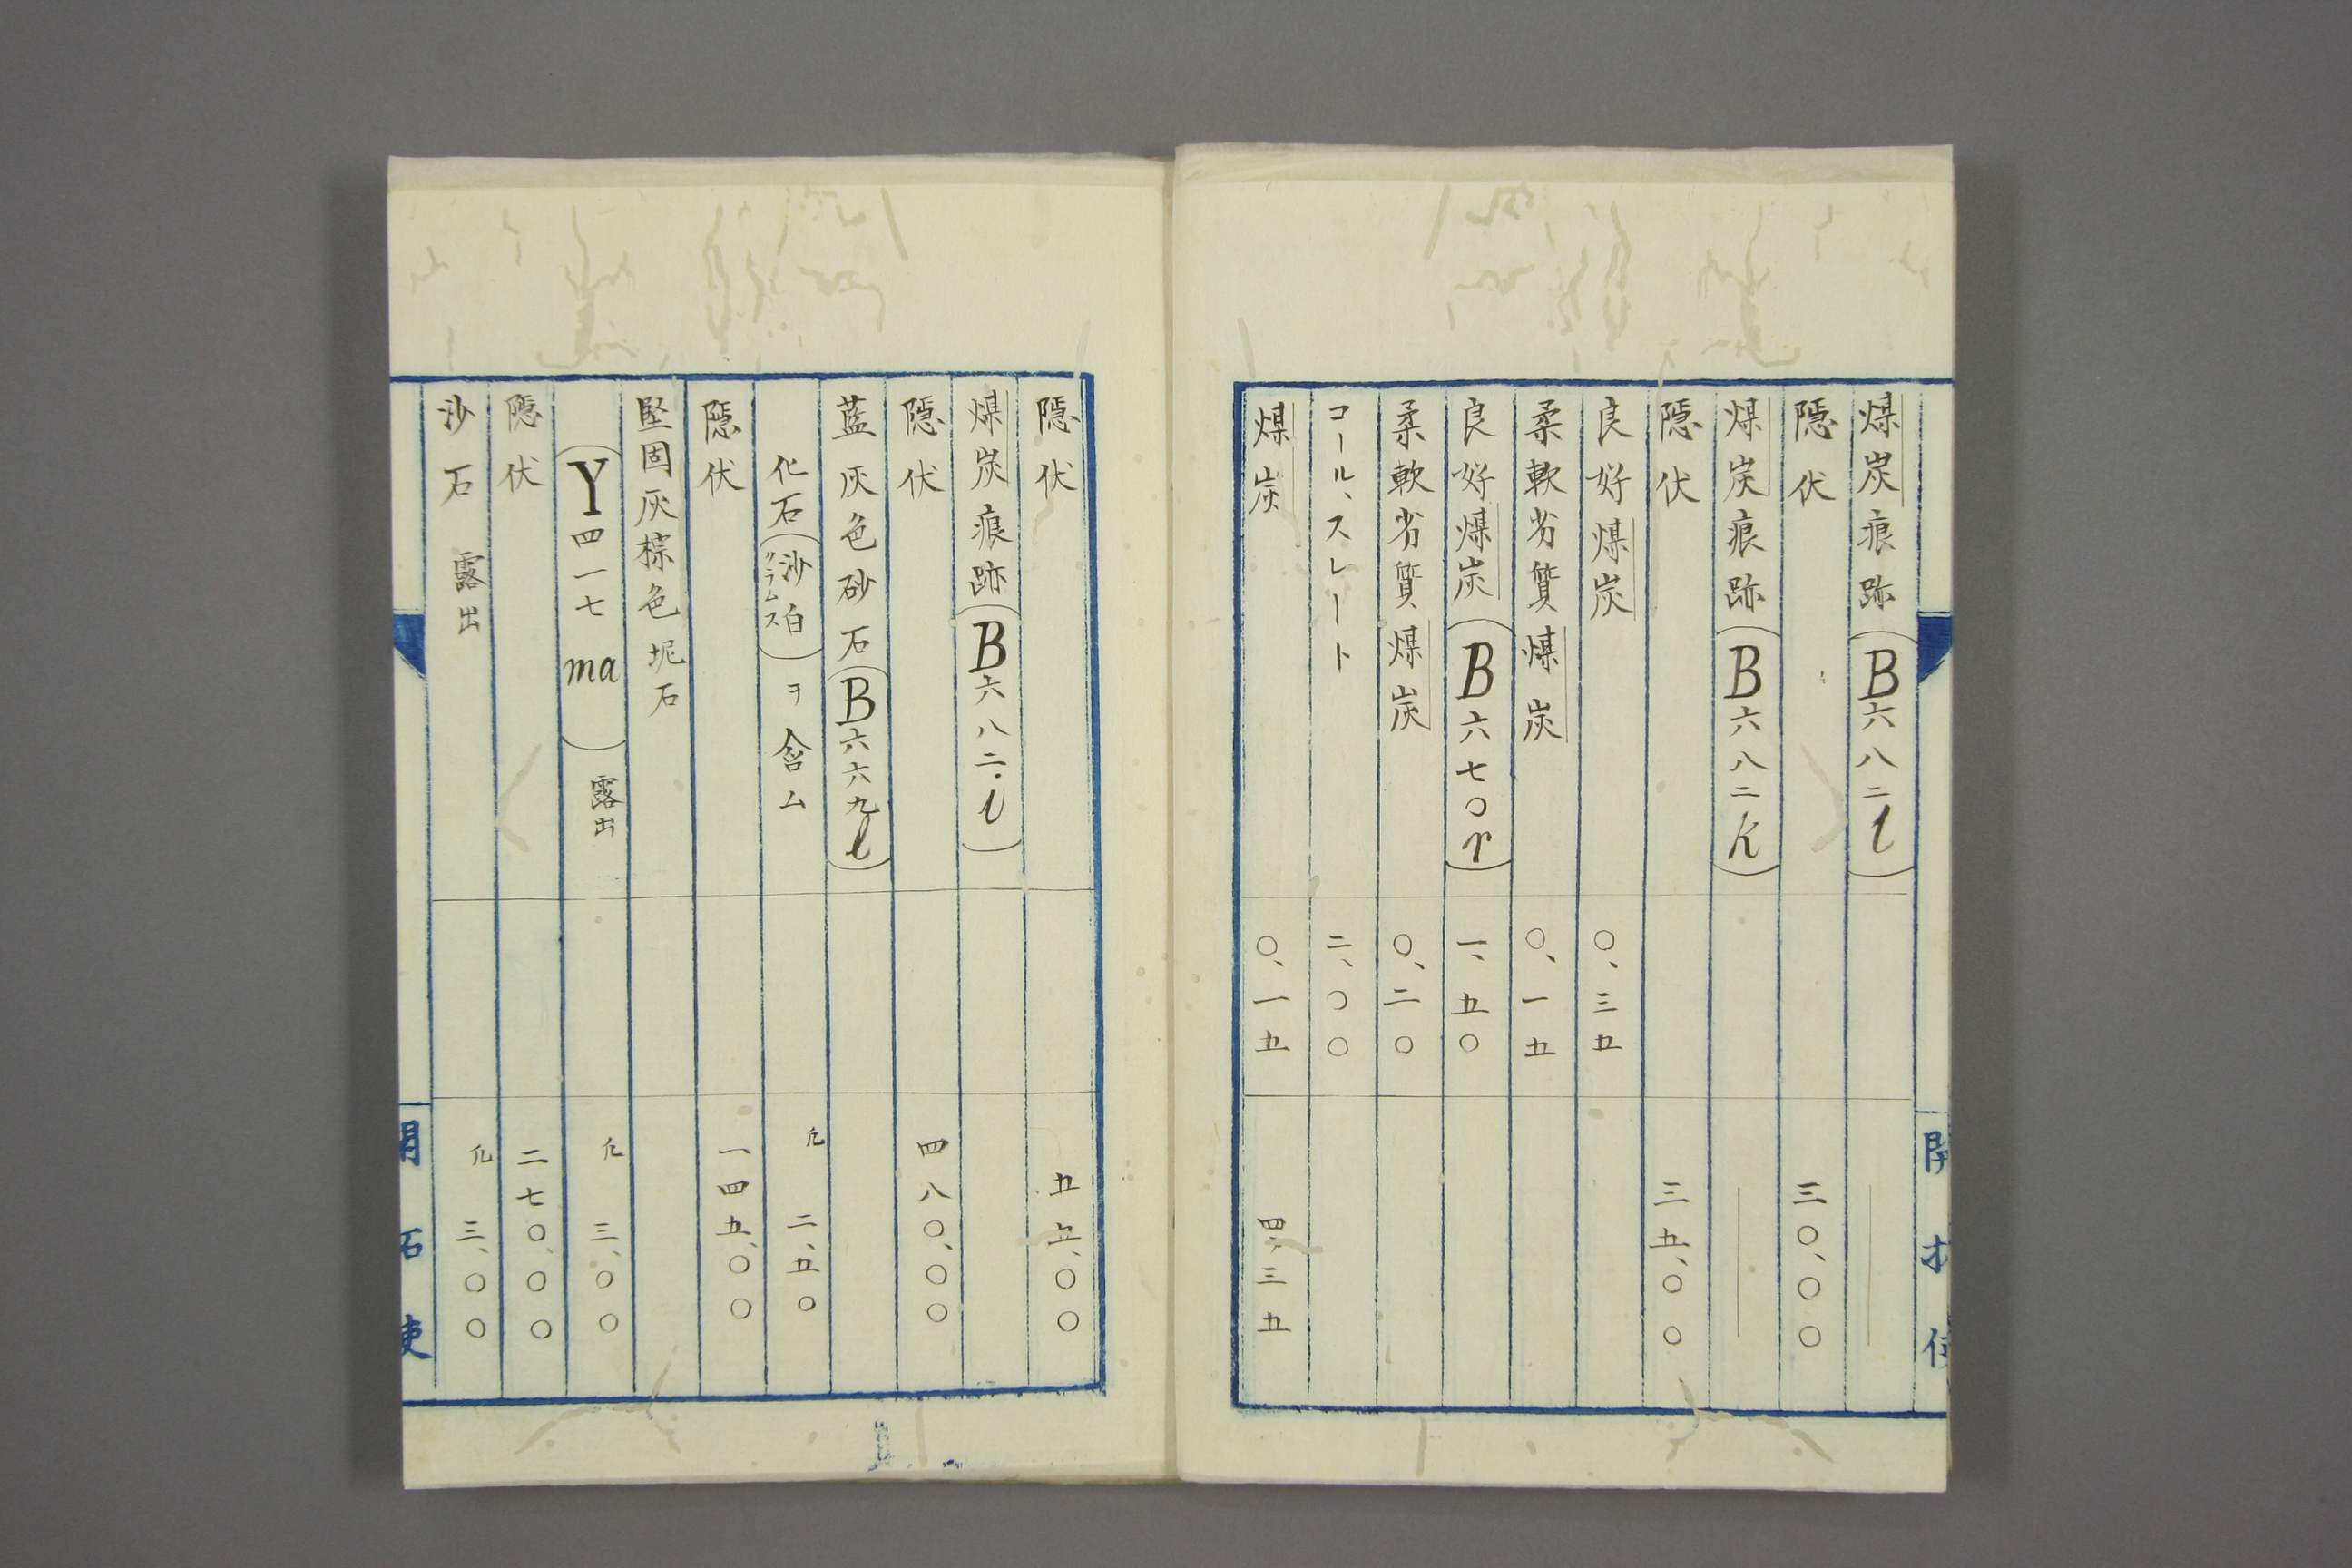 煤炭痕跡(B六八二l)
隠伏 三〇、〇〇
煤炭痕跡(B六八二k)
隠伏 三五、〇〇
良好煤炭 〇、三五
柔軟劣質煤炭 〇、一五
良好煤炭(B六七〇r) 一、五〇
柔軟劣質煤炭 〇、二〇
コールスレート 二、〇〇
煤炭 〇、一五 四、三五
隠伏 五五、〇〇
煤炭痕跡(B六八二.i)
隠伏 四八〇、〇〇
藍灰色砂石(B六六九l)
化石(沙白クラムス)ヲ含ム 凢 二、五〇
隠伏 一四五、〇〇
堅固灰棕色坭石
(Y四一七ma)露出 凢 三、〇〇
隠伏 二七〇、〇〇
沙石 露出 凢 三、〇〇